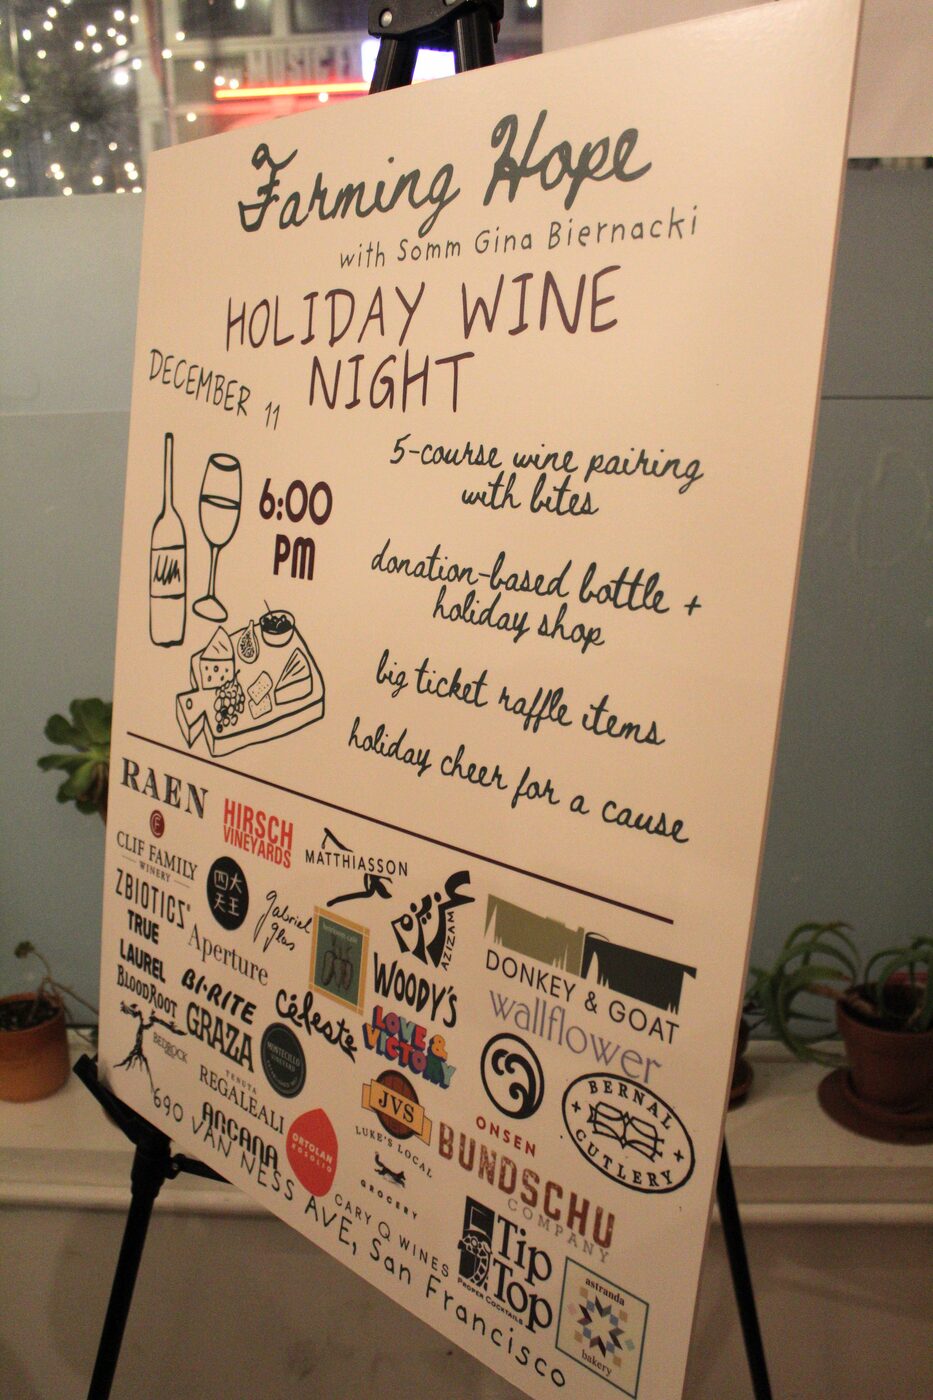 MUSIC
Farming Hope
with Somm Gina Biernacki
HOLIDAY WINE
NIGHT
DECEMBER 11
6:00
PM
5-course wine pairing
with bites
donation-based bottle +
holiday shop
big ticket raffle items
holiday cheer for a cause
RAEN
HIRSCH
VINEYARDS
MATTHIASSON
CLIF FAMILY
WINERY
四大
天王
gabriel
glas
AZIZAM
DONKEY & GOAT
ZBIOTICS
Aperture
WOODY'S
wallflower
TRUE
LAUREL
BI-RITE
Céleste
LOVE &
VICTORY
BLOODROOT
GRAZA
MONTECILLO
VINEYARD
ONSEN
BERNAL
CUTLERY
BEDROCK
TENUTA
REGALEALI
JVS
LUKE'S LOCAL
GROCERY
BUNDSCHU
COMPANY
ARCANA
ORTOLAN
ROSOLIO
CARY Q WINES
Tip
Top
PROPER COCKTAILS
astranda
bakery
690 VAN NESS AVE, San Francisco